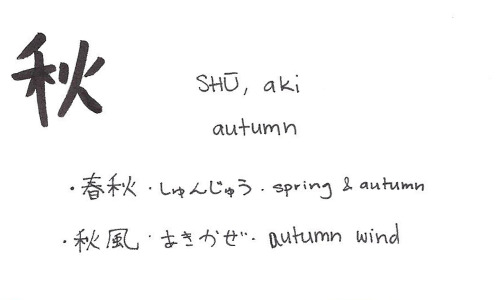 秋
SHŪ, aki
autumn
・春秋・しゅんじゅう・spring & autumn
・秋風・あきかぜ・autumn wind